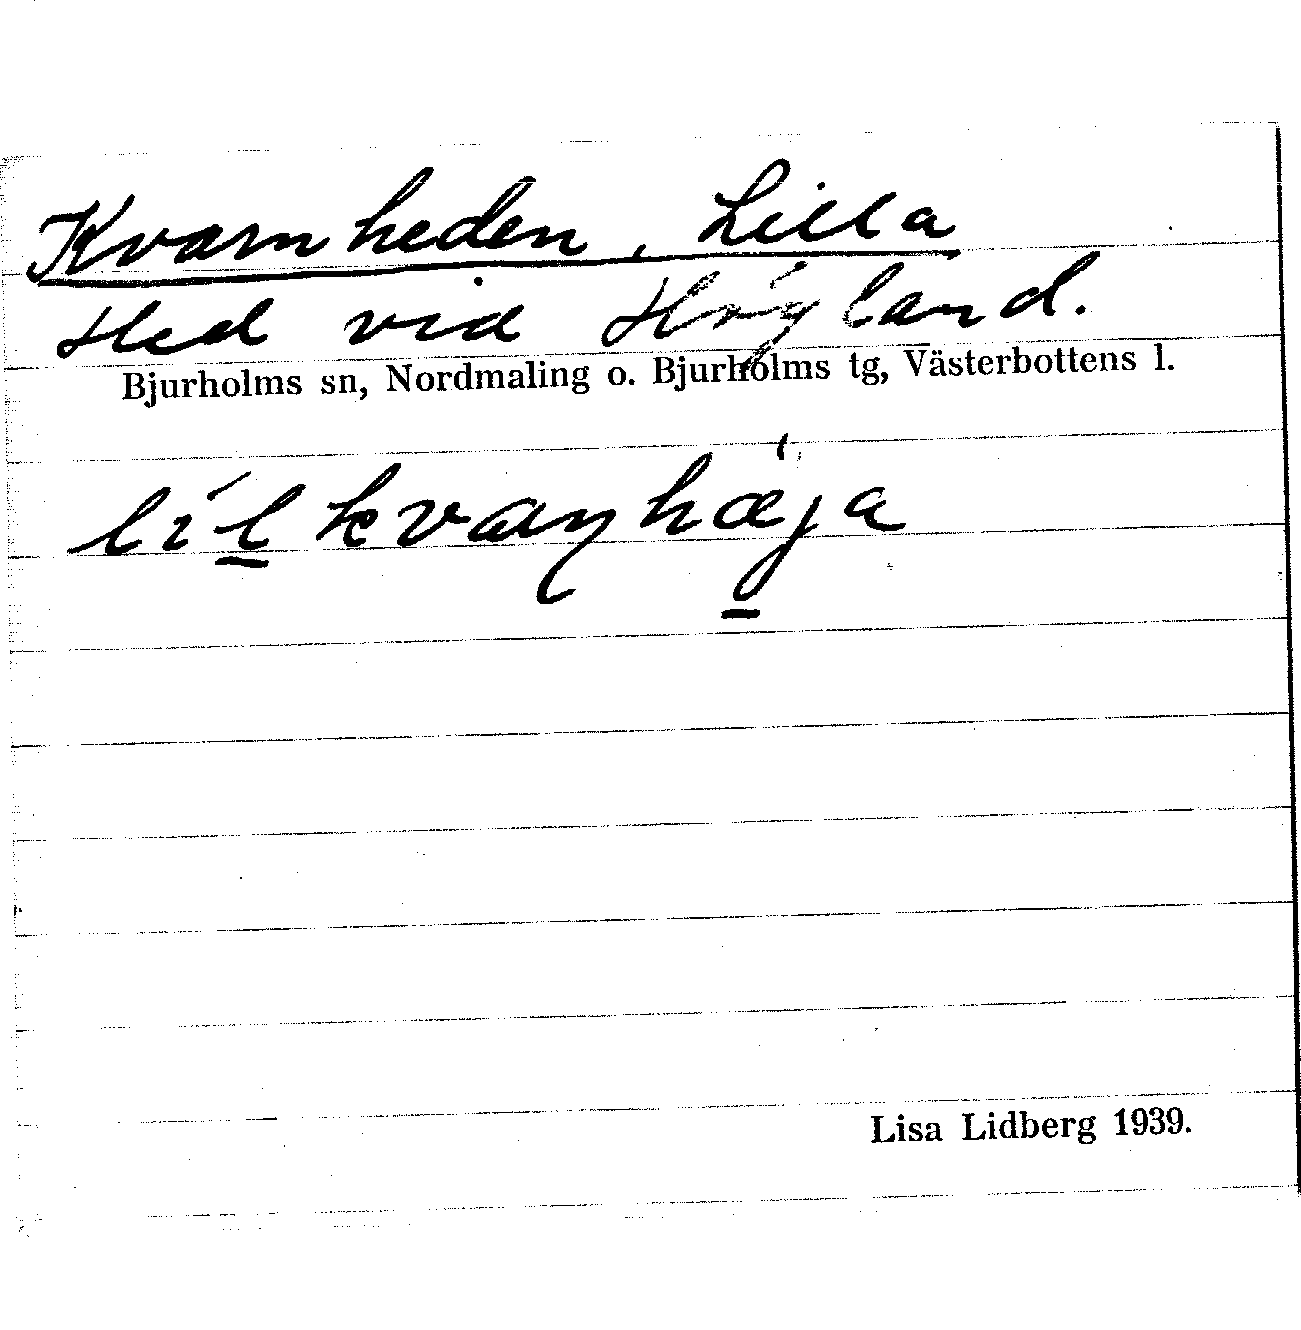 Kvarnheden, Lilla
Hed vid Högland.
Bjurholms sn, Nordmaling o. Bjurholms tg, Västerbottens l.
Lisa Lidberg 1939.